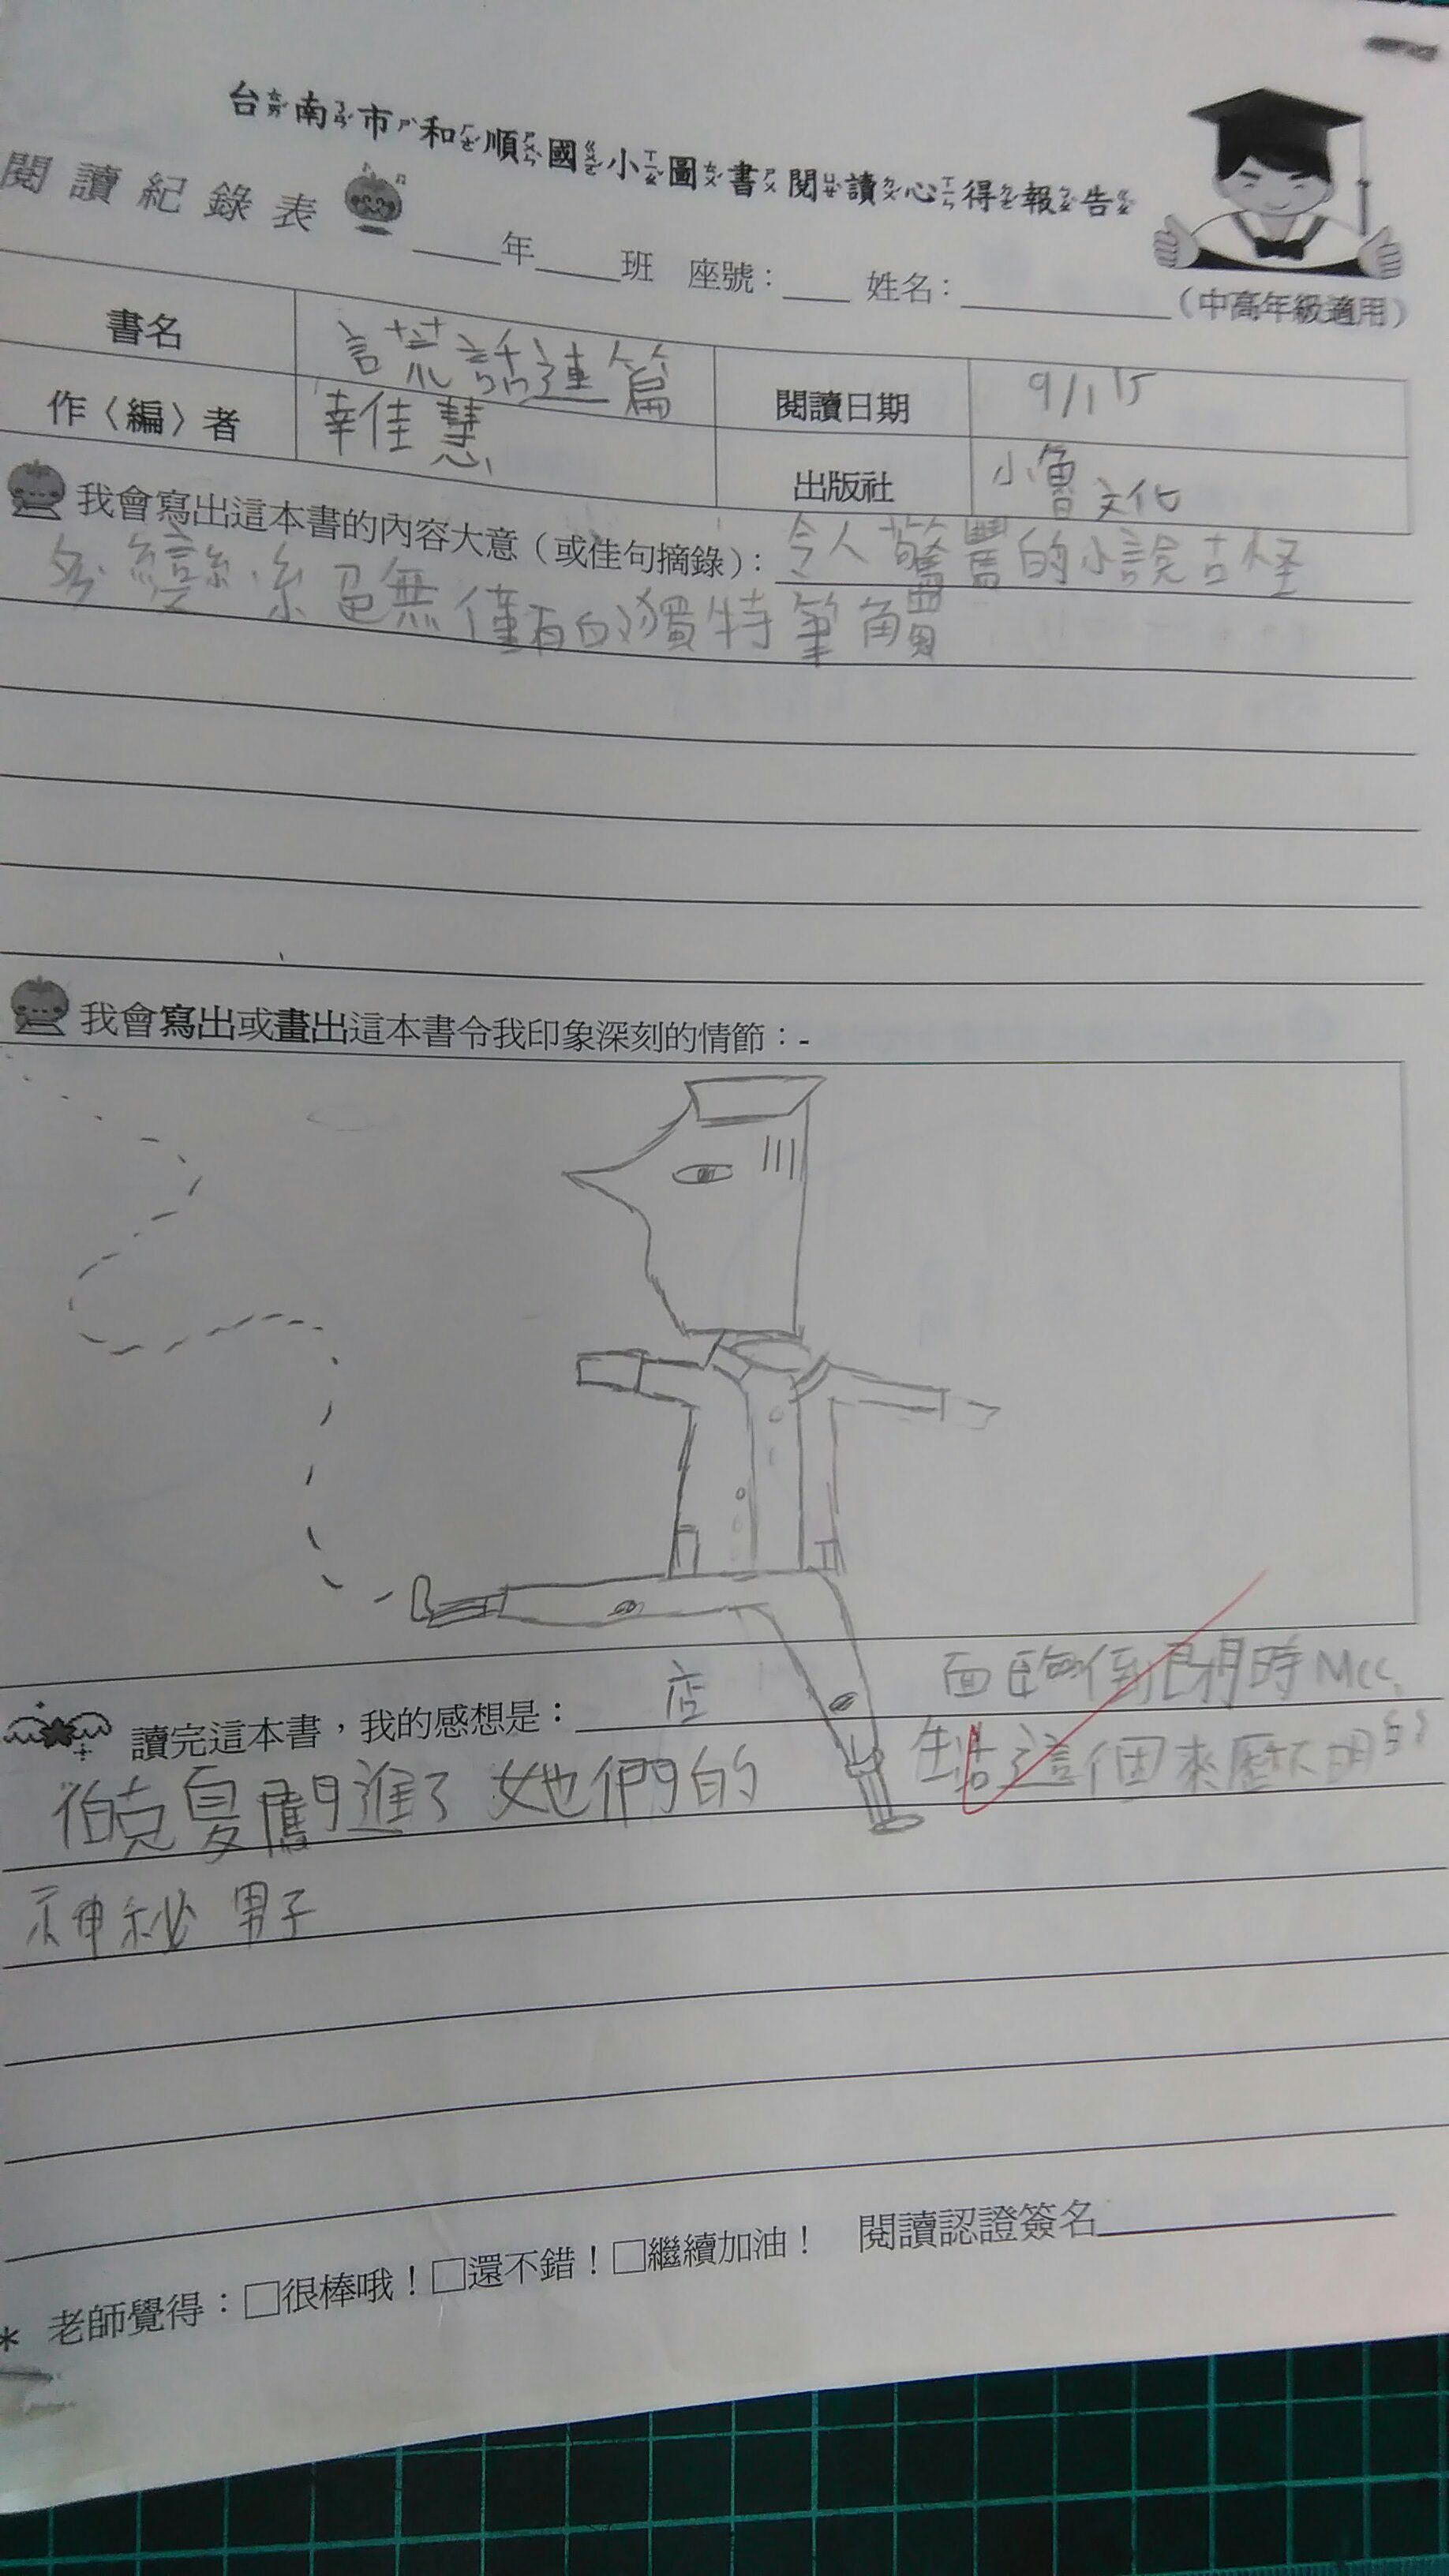 台南市和順國小圖書閱讀心得報告
閱讀紀錄表
___年___班 座號：___ 姓名：______（中高年級適用）
書名 謊話連篇 閱讀日期 9/15
作〈編〉者 幸佳慧 出版社 小魯文化
我會寫出這本書的內容大意（或佳句摘錄）：令人驚豐的小說古怪
多變絕無僅有的獨特筆觸
我會寫出或畫出這本書令我印象深刻的情節：-
讀完這本書，我的感想是： 店 面臨倒閉時Mcc.
伯克夏闖進了她們的 生活這個來歷不明的
神秘男子
* 老師覺得：□很棒哦！□還不錯！□繼續加油！ 閱讀認證簽名